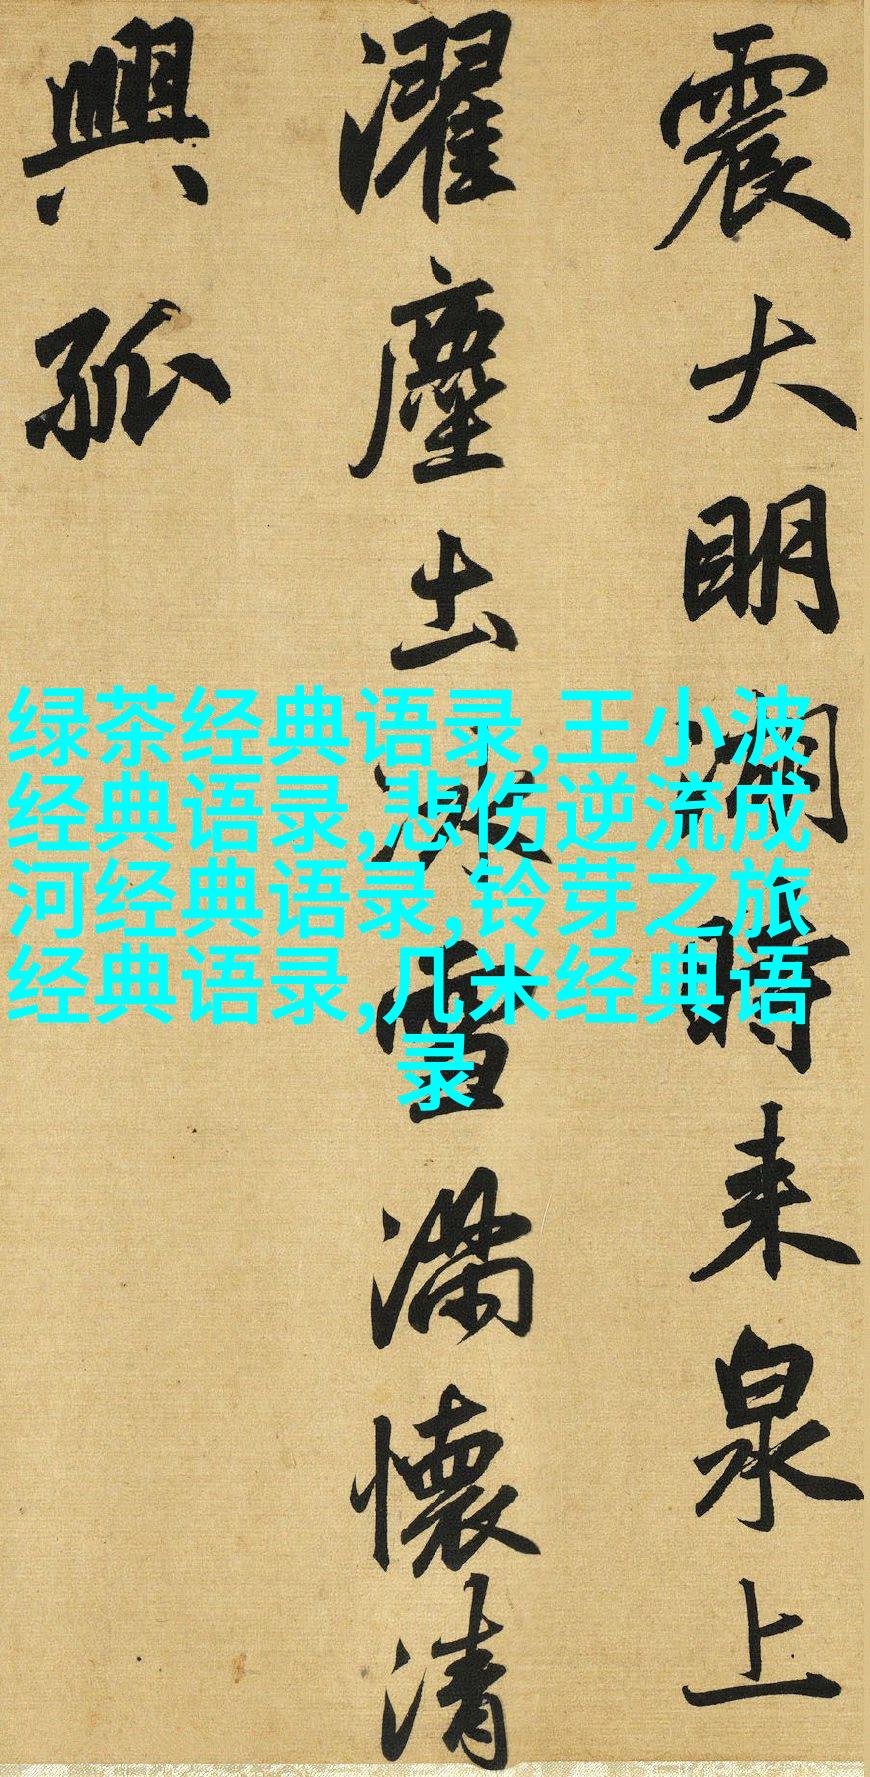 震大明湖時来泉上
濯塵出冰雪滿懷清
興孤
绿茶经典语录,王小波
经典语录,悲伤逆流成
河经典语录,铃芽之旅
经典语录,几米经典语
录